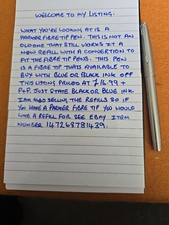 WELCOME TO MY LISTING.
WHAT YOU'RE LOOKING AT IS A
PARKER FIBRE TIP PEN. THIS IS NOT AN
OLD ONE THAT STILL WORKS IT A
NEW REFILL WITH A CONVERTION TO
FIT THE FIBRE TIP PENS. THIS PEN
IS A FIBRE TIP THATS AVAILABLE TO
BUY WITH BLUE OR BLACK INK OFF
THIS LISTING PRICED AT £16.99 +
P+P. JUST STATE BLACK OR BLUE INK.
I AM ALSO SELLING THE REFILLS SO IF
YOU HAVE A PARKER FIBRE TIP YOU WOULD
LIKE A REFILL FOR SEE EBAY ITEM
NUMBER 147268781439.